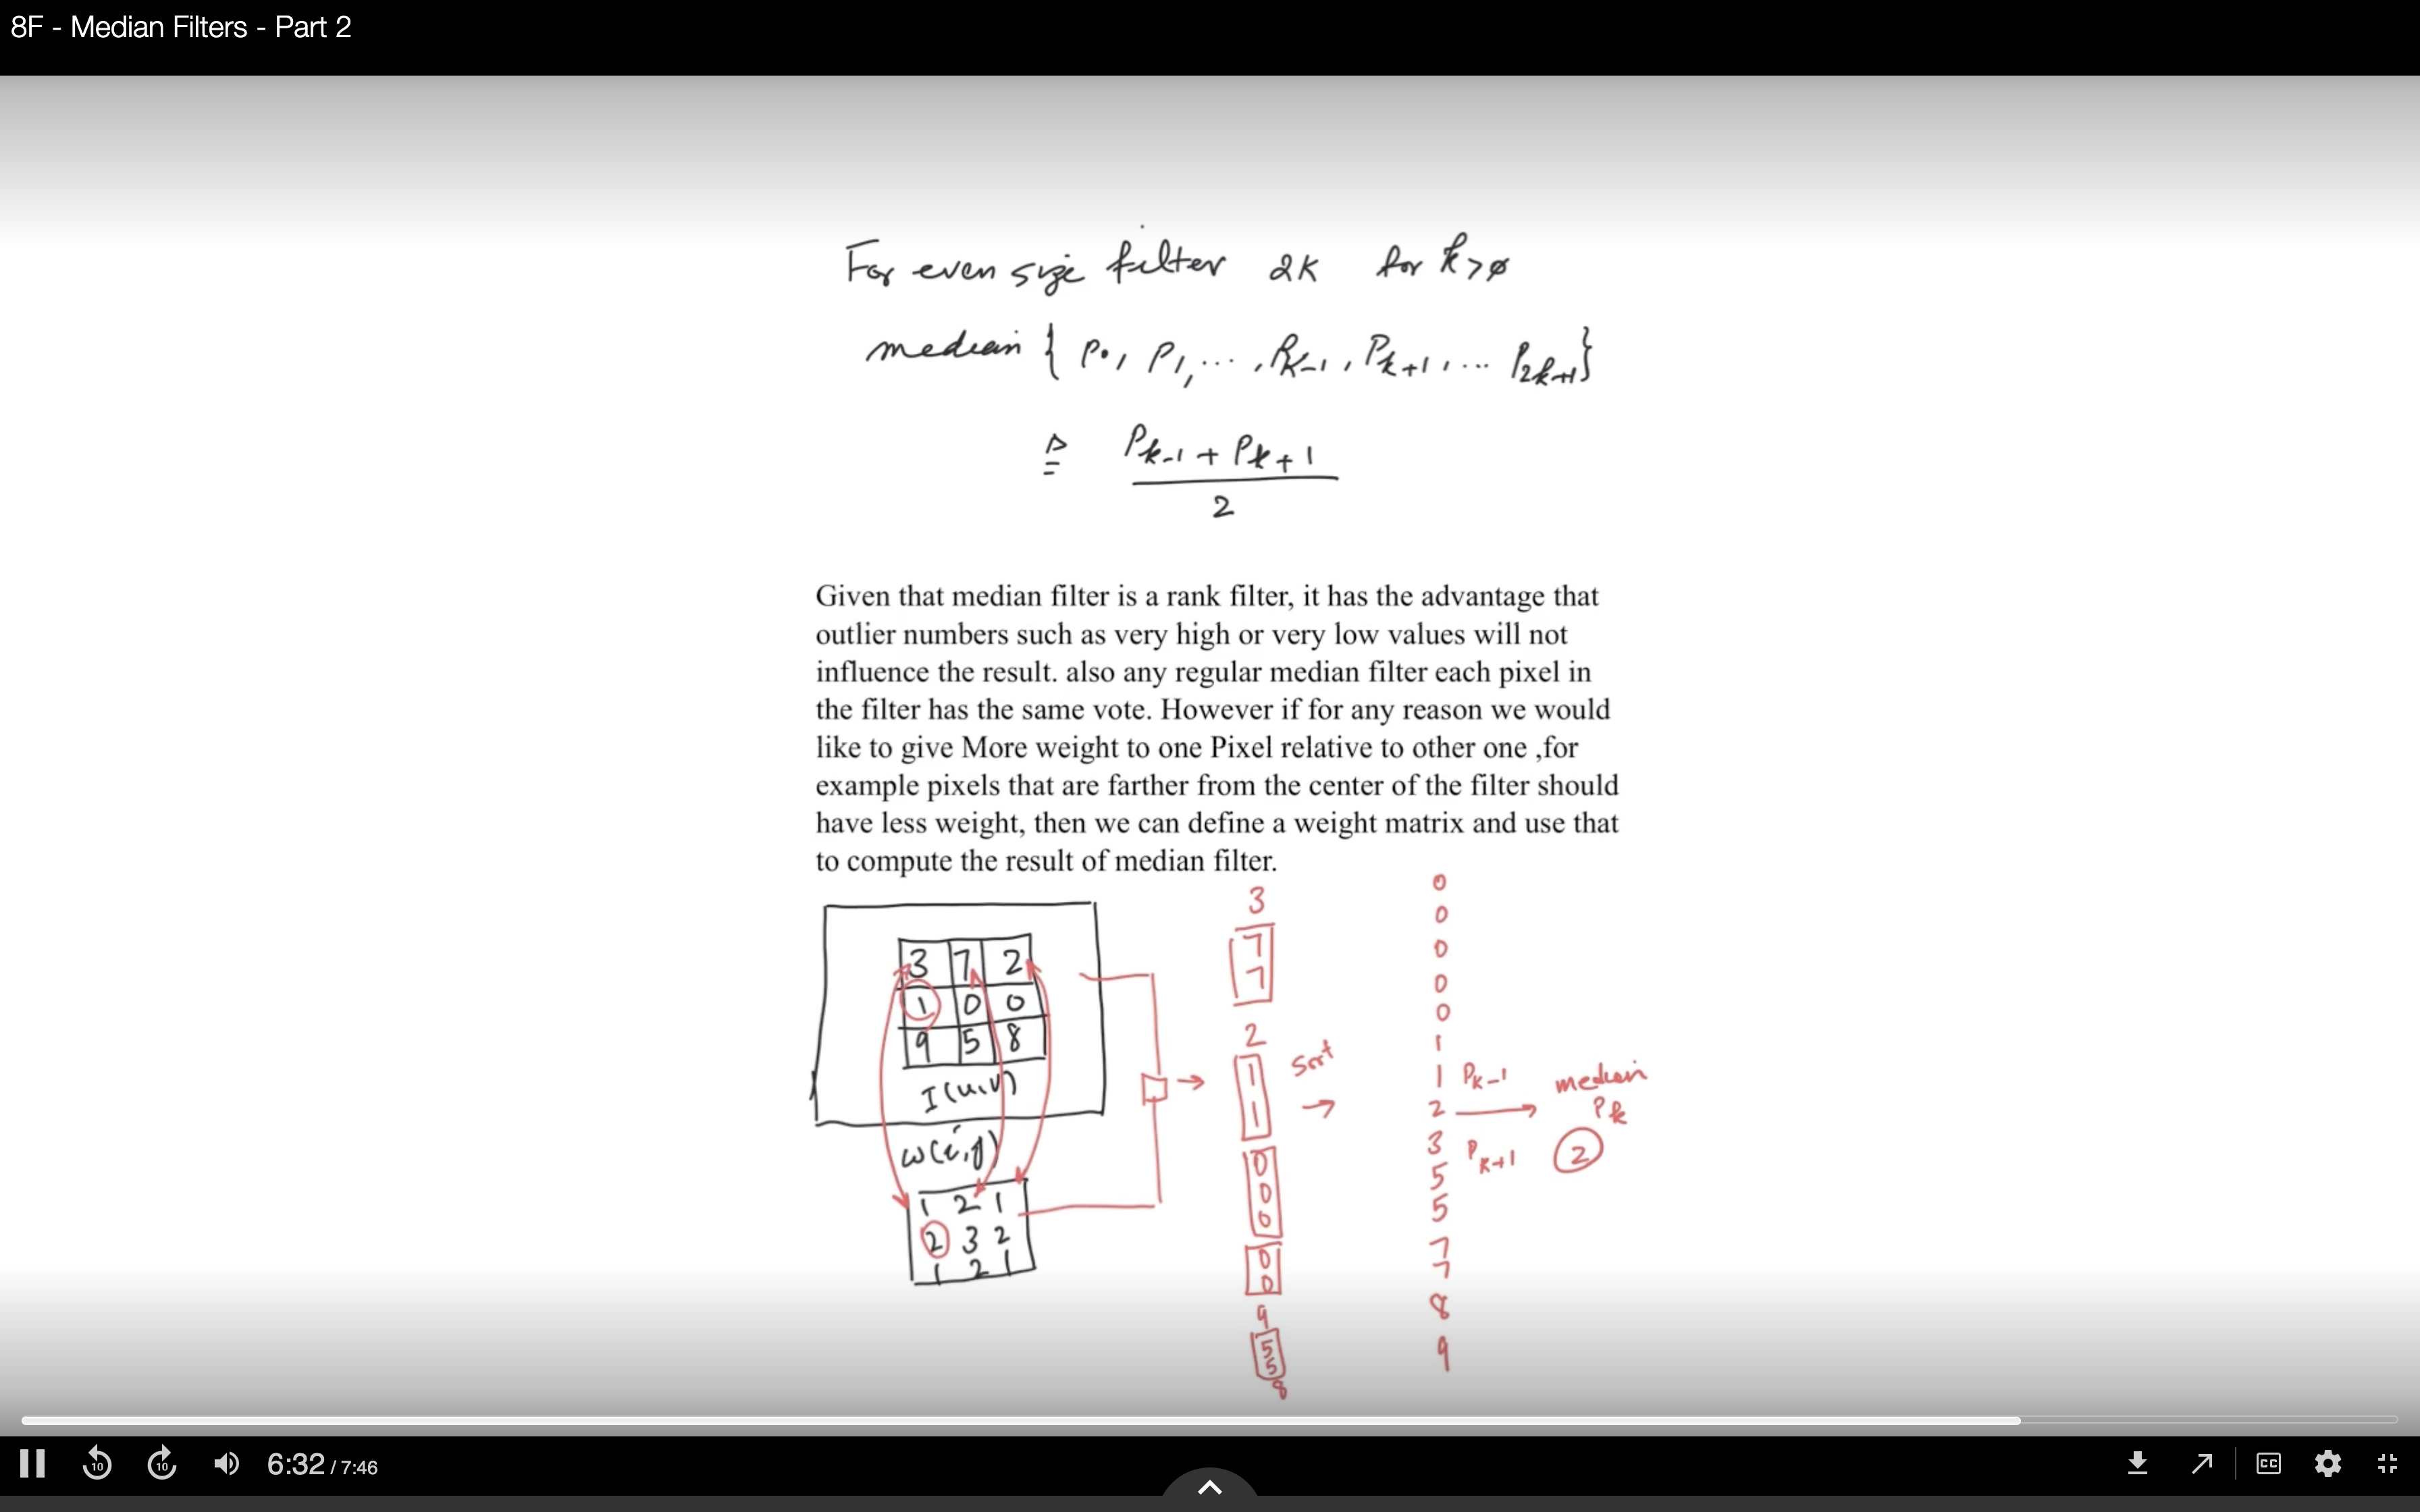 8F - Median Filters - Part 2
For even size filter 2K for k>0
median { P0, P1, ..., Pk-1, Pk+1, ... P2k+1}
≜ Pk-1 + Pk+1
2
Given that median filter is a rank filter, it has the advantage that
outlier numbers such as very high or very low values will not
influence the result. also any regular median filter each pixel in
the filter has the same vote. However if for any reason we would
like to give More weight to one Pixel relative to other one ,for
example pixels that are farther from the center of the filter should
have less weight, then we can define a weight matrix and use that
to compute the result of median filter.
3 7 2
1 0 0
9 5 8
I(u,v)
w(i,j)
1 2 1
2 3 2
1 2 1
3
7
7
2
1
1
0
0
0
0
0
9
5
5
8
Sort
→
0
0
0
0
0
1
1 Pk-1
2 → median Pk
3 Pk+1 2
5
5
7
7
8
9
10 10 6:32 / 7:46 CC